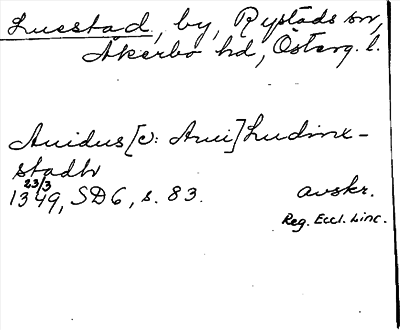 Lucstad, by, Rystads sn,
Åkerbo hd, Österg. l.
Auidus [v: Arui] Ludinx-
stadhr
1349, 23/3 SD6, s. 83. avskr.
Reg. Eccl. Linc.